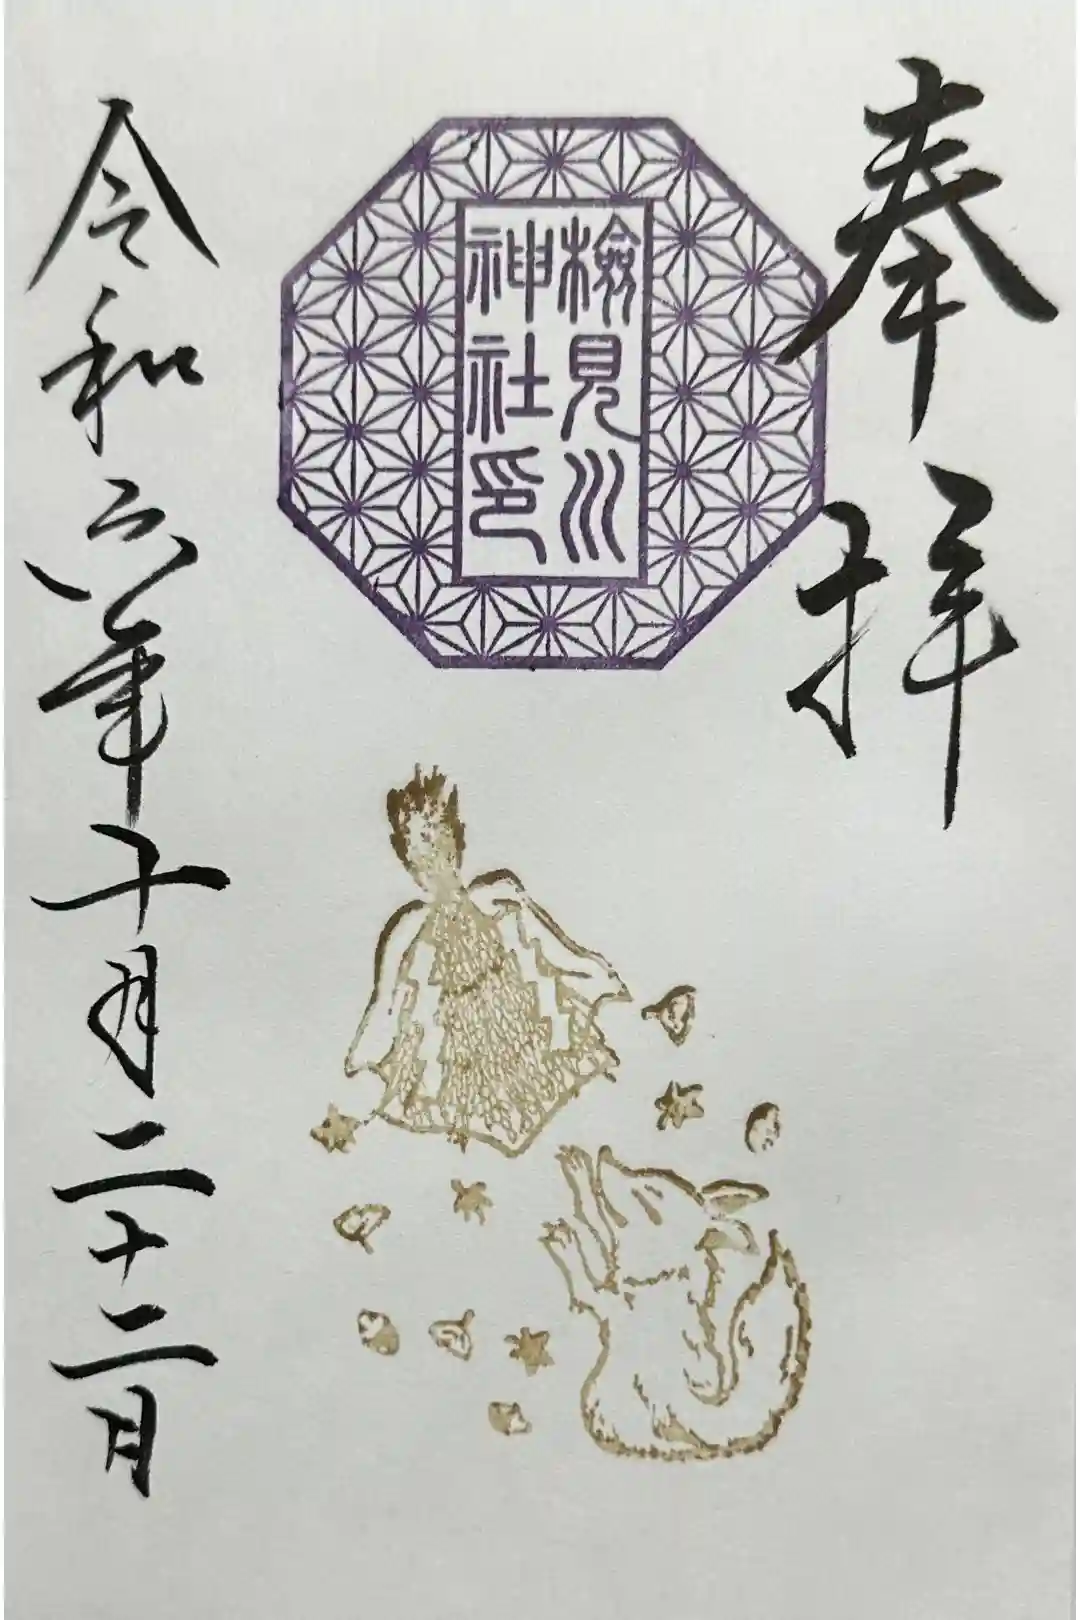 奉拝
檢見川
神社印
令和六年十月二十二日